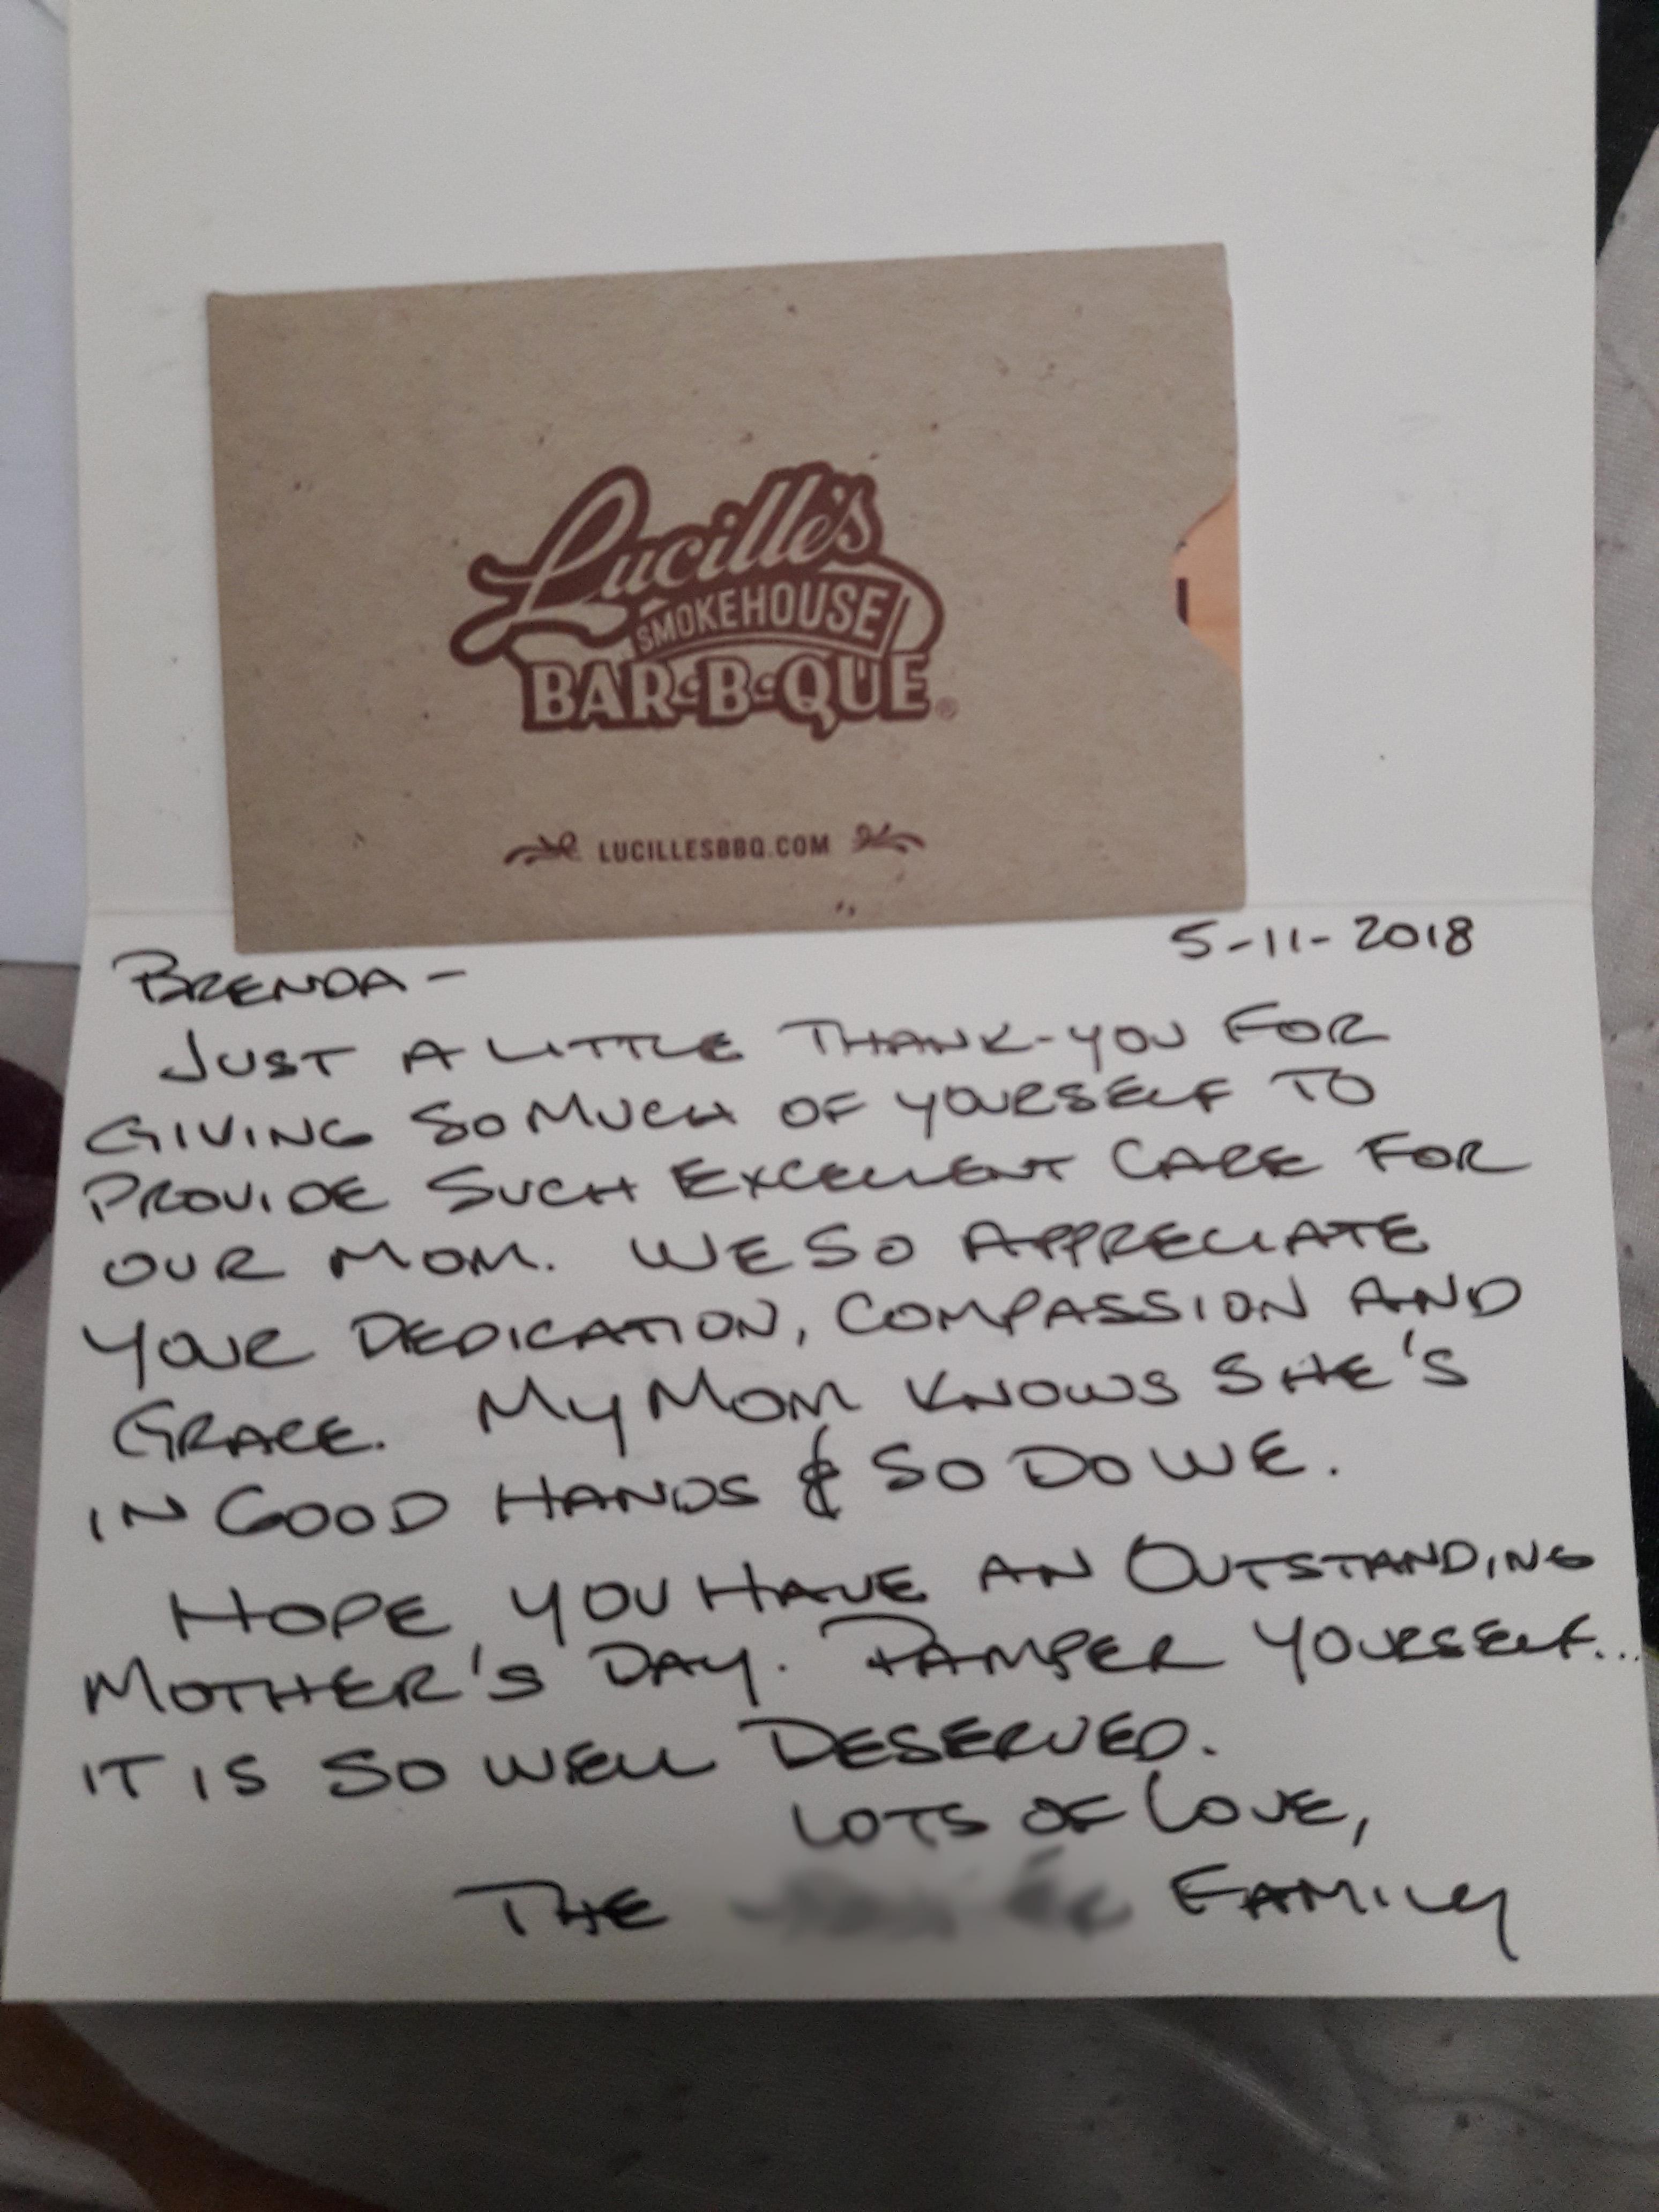 Lucille's
SMOKEHOUSE
BAR-B-QUE®
LUCILLESBBQ.COM
5-11-2018
BRENDA -
JUST A LITTLE THANK-YOU FOR
GIVING SO MUCH OF YOURSELF TO
PROVIDE SUCH EXCELLENT CARE FOR
OUR MOM. WE SO APPRECIATE
YOUR DEDICATION, COMPASSION AND
GRACE. MY MOM KNOWS SHE'S
IN GOOD HANDS & SO DO WE.
HOPE YOU HAVE AN OUTSTANDING
MOTHER'S DAY. PAMPER YOURSELF...
IT IS SO WELL DESERVED.
LOTS OF LOVE,
THE FAMILY